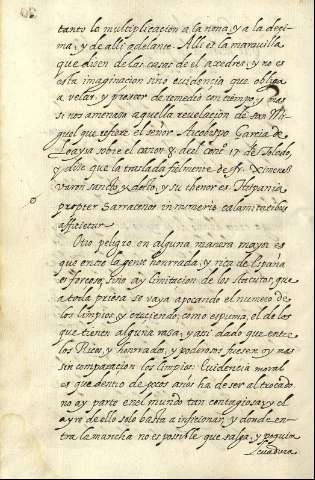 tanto la multiplicacion a la nona, y a la deci
ma, y de alli adelante. Alli es la maravilla
que disen de las casas de el acedres, y no es
esta imaginacion sino evidencia que obliga
a velar, y proveer de remedio con tiempo, y mas
si nos amenasa aquella revelacion de san Mi
guel que refiere el señor Arcobispo Garcia de
Loaysa sobre el canon 8 del conc.º 17 de Toledo,
y dise que la traslada fielmente de fr. Ximenes
varon sancto, y docto, y su thenor es Hispania
propter Sarracenos innumeris calamitatibus
afficietur
Otro peligro en alguna manera mayor es
que entre la gente honrrada, y rica de España
es forcoso, sino ay limitacion de los statutos, que
a toda priesa se vaya apocando el numero de
los limpios, y cresciendo como espuma, el de los
que tienen alguna rasa, y assi dado que entre
los Ricos, y honrrados, y poderosos fuesen mas
sin comparacion los limpios: Evidencia moral
es que dentro de pocos años ha de ser al trocado
no ay parte en el mundo tan contagiosa, y el
ayre de ello solo basta a inficionar, y donde en
tra la mancha no es posible que salga, y poquita
levadura